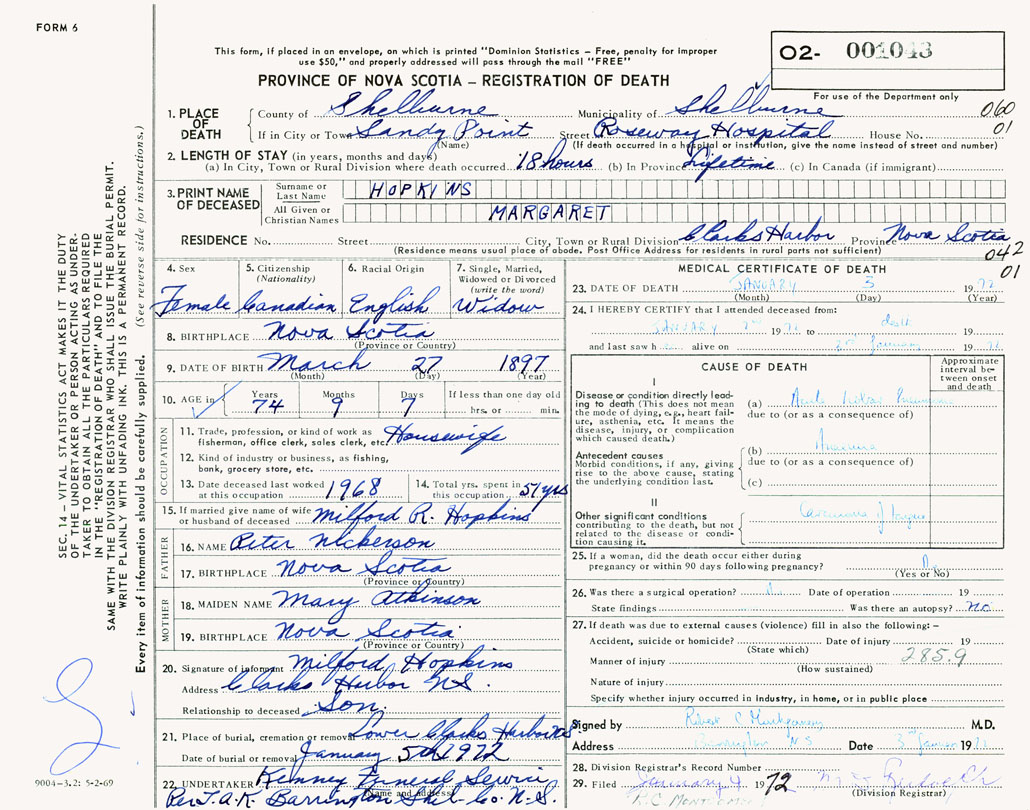 FORM 6
This form, if placed in an envelope, on which is printed "Dominion Statistics — Free, penalty for improper
use $50," and properly addressed will pass through the mail "FREE"
O2- 001043
For use of the Department only
PROVINCE OF NOVA SCOTIA — REGISTRATION OF DEATH
1. PLACE OF DEATH
County of Shelburne Municipality of Shelburne 060
If in City or Town Sandy Point Street Roseway Hospital House No. 01
(Name) (If death occurred in a hospital or institution, give the name instead of street and number)
2. LENGTH OF STAY (in years, months and days)
(a) In City, Town or Rural Division where death occurred 18 hours (b) In Province Lifetime (c) In Canada (if immigrant)
3. PRINT NAME OF DECEASED
Surname or Last Name HOPKINS
All Given or Christian Names MARGARET
RESIDENCE No. Street City, Town or Rural Division Clarks Harbor Province Nova Scotia
(Residence means usual place of abode. Post Office Address for residents in rural parts not sufficient) 042
01
SEC. 14 — VITAL STATISTICS ACT MAKES IT THE DUTY
OF THE UNDERTAKER OR PERSON ACTING AS UNDER-
TAKER TO OBTAIN ALL THE PARTICULARS REQUIRED
IN THE "REGISTRATION OF DEATH" AND TO FILE THE
SAME WITH THE DIVISION REGISTRAR WHO SHALL ISSUE THE BURIAL PERMIT.
WRITE PLAINLY WITH UNFADING INK. THIS IS A PERMANENT RECORD.
Every item of information should be carefully supplied. (See reverse side for instructions.)
4. Sex Female
5. Citizenship (Nationality) Canadian
6. Racial Origin English
7. Single, Married, Widowed or Divorced (write the word) Widow
8. BIRTHPLACE Nova Scotia
(Province or Country)
9. DATE OF BIRTH March 27 1897
(Month) (Day) (Year)
10. AGE in Years 74 Months 9 Days 7 If less than one day old hrs. or min.
OCCUPATION
11. Trade, profession, or kind of work as fisherman, office clerk, sales clerk, etc. Housewife
12. Kind of industry or business, as fishing, bank, grocery store, etc.
13. Date deceased last worked at this occupation 1968
14. Total yrs. spent in this occupation 51 yrs
15. If married give name of wife or husband of deceased Milford R. Hopkins
FATHER
16. NAME Peter Nickerson
17. BIRTHPLACE Nova Scotia
(Province or Country)
MOTHER
18. MAIDEN NAME Mary Atkinson
19. BIRTHPLACE Nova Scotia
(Province or Country)
20. Signature of informant Milford Hopkins
Address Clarks Harbor N.S.
Relationship to deceased Son
21. Place of burial, cremation or removal Lower Clarks Harbor N.S
Date of burial or removal January 5th 1972
22. UNDERTAKER Kenney Funeral Service
(Name and address)
Per J.A.K. Barrington Shel. Co. N.S.
9004—3.2: 5-2-69
MEDICAL CERTIFICATE OF DEATH
23. DATE OF DEATH JANUARY 3 1972
(Month) (Day) (Year)
24. I HEREBY CERTIFY that I attended deceased from:
JANUARY 19 to death 19
and last saw h alive on January 19
CAUSE OF DEATH
Approximate interval between onset and death
I
Disease or condition directly leading to death (This does not mean the mode of dying, e.g., heart failure, asthenia, etc. It means the disease, injury, or complication which caused death.)
(a) Acute Lobar
due to (or as a consequence of)
Antecedent causes
Morbid conditions, if any, giving rise to the above cause, stating the underlying condition last.
(b) Anaemia
due to (or as a consequence of)
(c)
II
Other significant conditions contributing to the death, but not related to the disease or condition causing it.
Carcinoma of
25. If a woman, did the death occur either during
pregnancy or within 90 days following pregnancy?
(Yes or No)
26. Was there a surgical operation? Date of operation 19
State findings Was there an autopsy? no
27. If death was due to external causes (violence) fill in also the following: —
Accident, suicide or homicide? Date of injury 19
(State which) 285.9
Manner of injury
(How sustained)
Nature of injury
Specify whether injury occurred in industry, in home, or in public place
Signed by Robert C M.D.
Address Barrington NS Date 3 January 19
28. Division Registrar's Record Number
29. Filed January 1972
(Division Registrar)